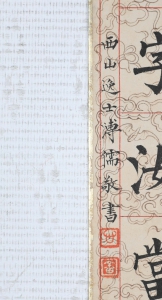 字汝當
西山逸士溥儒敬書